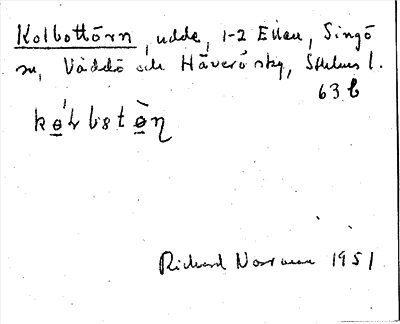 Kolbottörn, udde, 1-2 Ellan, Singö
sn, Väddö och Häverö skg, Sthlms l.
63 b
Richard Norrman 1951